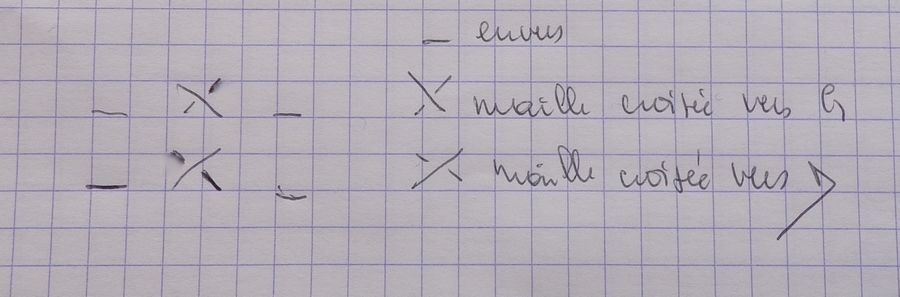 _ envers
_ X _ X maille croisée vers G
_ X _ X maille croisée vers D